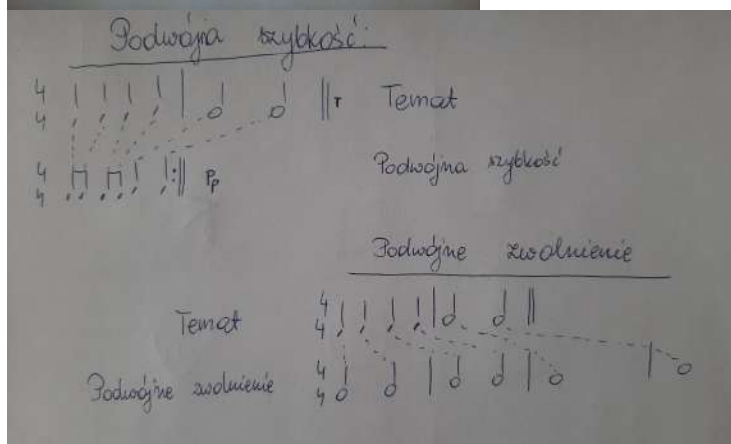 Podwójna szybkość:
4 4 T Temat
4 4 Pp Podwójna szybkość
Podwójne zwolnienie
Temat 4 4
Podwójne zwolnienie 4 4